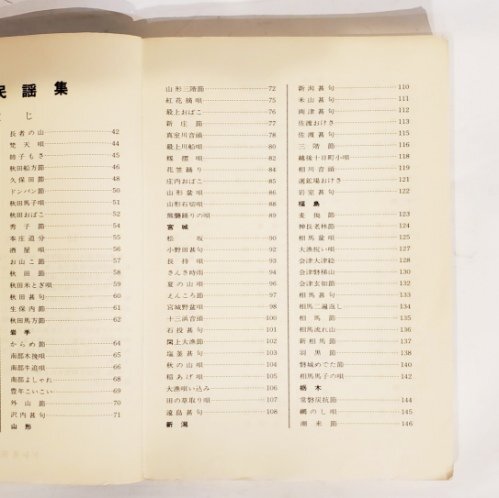 民謡集
じ
長者の山 42
梵天唄 44
姉子もさ 45
秋田船方節 46
久保田節 48
ドンパン節 50
秋田馬子唄 51
秋田おばこ 52
秀子節 54
本庄追分 55
酒屋唄 56
お山こ節 57
秋田節 58
秋田米とぎ唄 59
秋田甚句 60
生保内節 61
秋田馬方節 62
岩手
からめ節 64
南部木挽唄 65
南部牛追唄 66
南部よしゃれ 68
豊年こいこい 69
外山節 70
沢内甚句 71
山形
山形三階節 72
紅花摘唄 75
最上おばこ 76
新庄節 77
真室川音頭 78
最上川船唄 80
花笠踊り 82
庄内おばこ 85
山形盆唄 86
山形石切唄 88
飛鶴踊りの唄 89
宮城
松坂 90
小野田甚句 91
長持唄 93
さんさ時雨 94
夏の山唄 96
えんころ節 97
宮城野盆唄 98
十三浜音頭 100
石投甚句 101
閖上大漁節 102
塩釜甚句 103
秋の山唄 104
稲あげ唄 105
大漁唄い込み 106
田の草取り唄 107
遠島甚句 108
新潟
新潟甚句 110
米山甚句 111
両津甚句 112
佐渡おけさ 113
佐渡甚句 115
三階節 116
越後十日町小唄 118
相川音頭 119
選鉱場おけさ 121
岩室甚句 122
福島
麦搗節 123
神長老林節 124
相馬盆唄 125
大漁祝い唄 127
会津大津絵 128
会津磐梯山 130
会津玄如節 131
相馬甚句 131
相馬二遍返し 134
相馬節 135
相馬流れ山 136
新相馬節 137
羽黒節 138
磐城めでた節 140
相馬馬子の唄 142
栃木
常磐炭坑節 144
網のし唄 145
潮来節 146